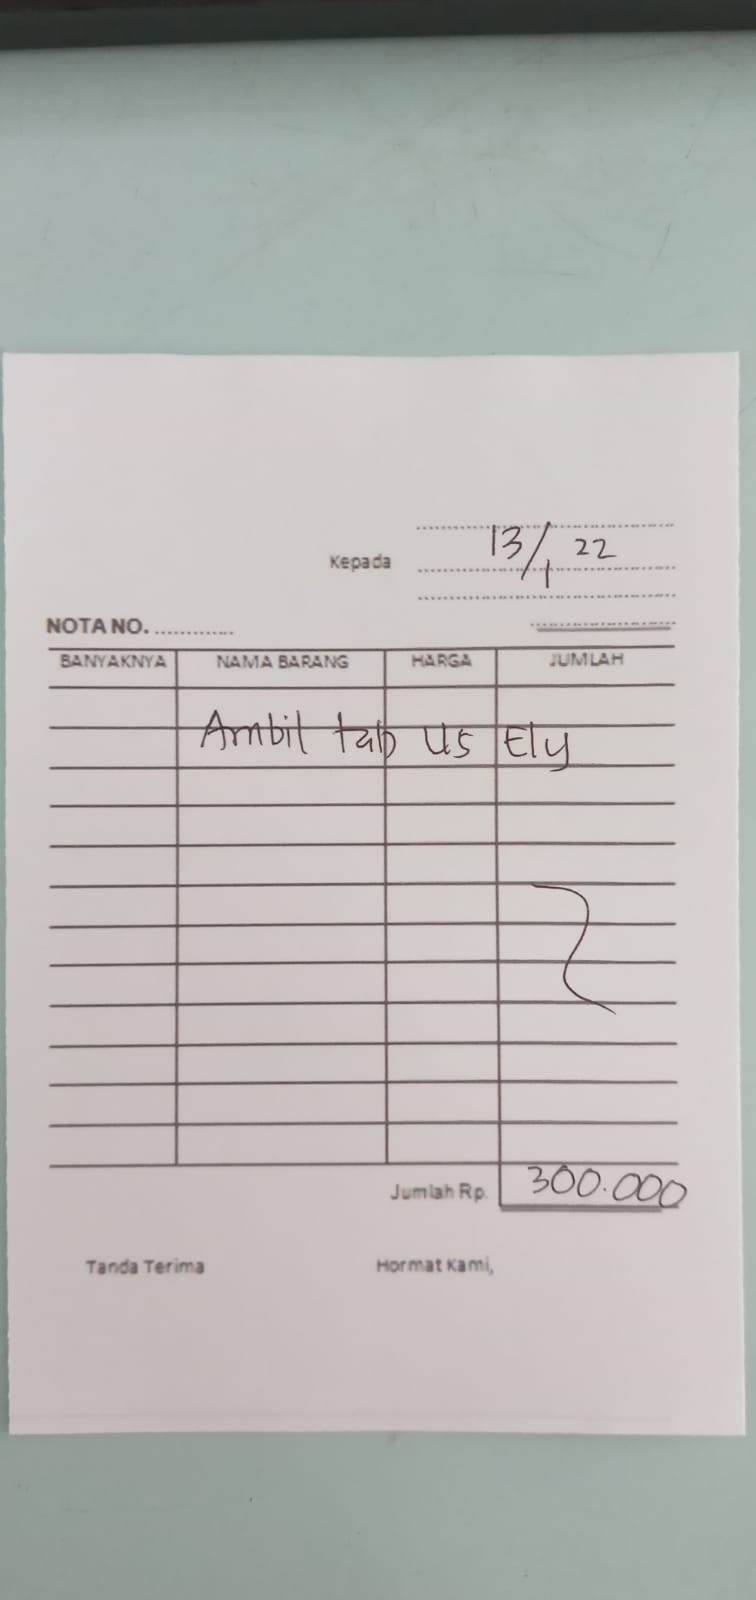 13/1 22
Kepada
NOTA NO. .............
BANYAKNYA NAMA BARANG HARGA JUMLAH
Ambil tab Us Ely
Jumlah Rp. 300.000
Tanda Terima Hormat Kami,